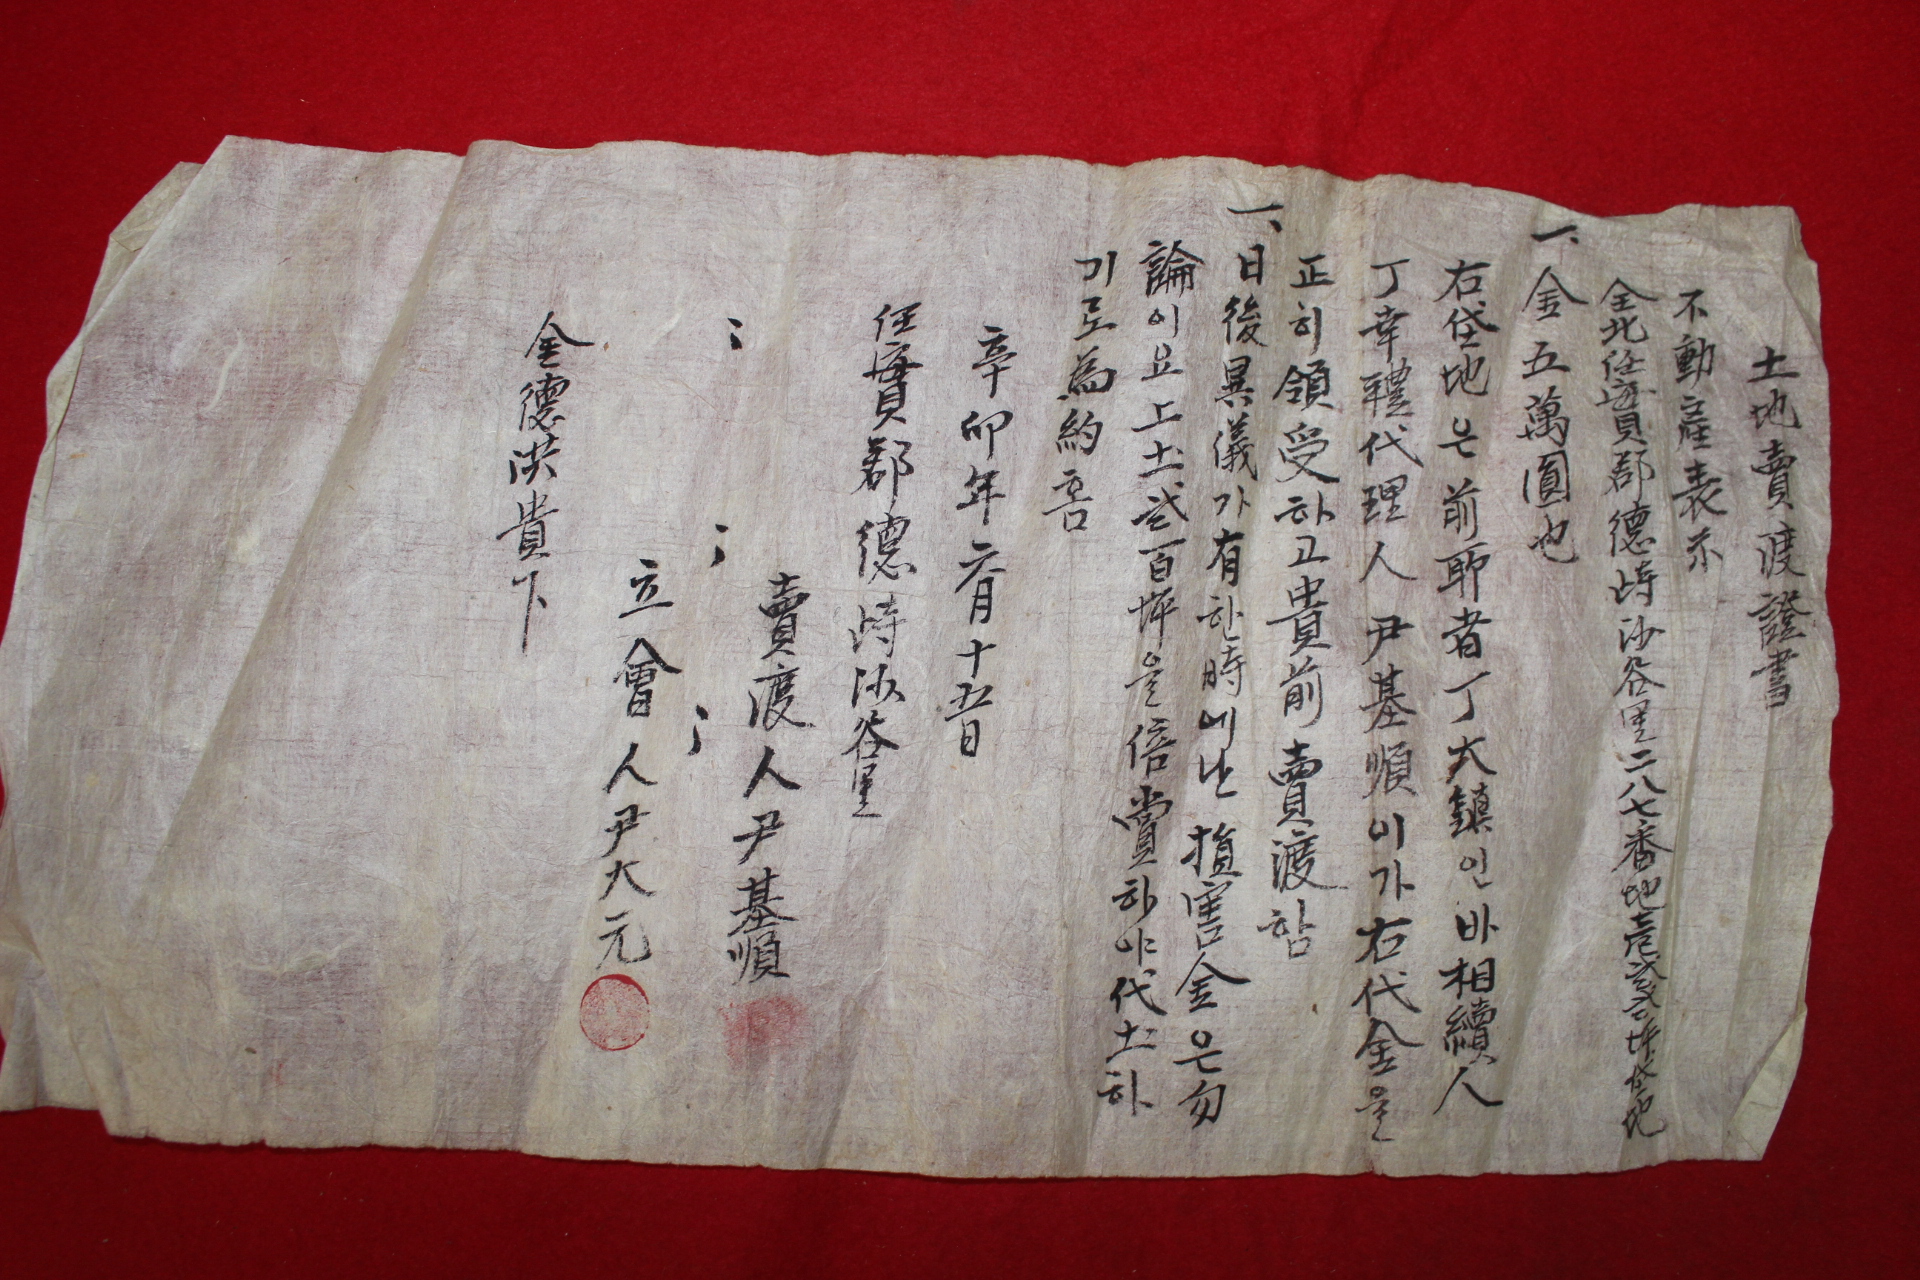 土地賣渡證書
不動産表示
全北任實郡德峙沙谷里二八七番地壱弐弐坪垈地
一、金五萬圓也
右垈地은前耶者丁大鎮인바相續人
丁幸禮代理人尹基順이가右代金을
正히領受하고貴前賣渡함
一、日後異儀가有한時에난損害金은勿
論이요上土弐百坪을倍賞하야代土하
기로為約홈
辛卯年六月十五日
任實郡德峙沙谷里
〃 〃 〃
賣渡人尹基順
立會人尹大元
金德洪貴下